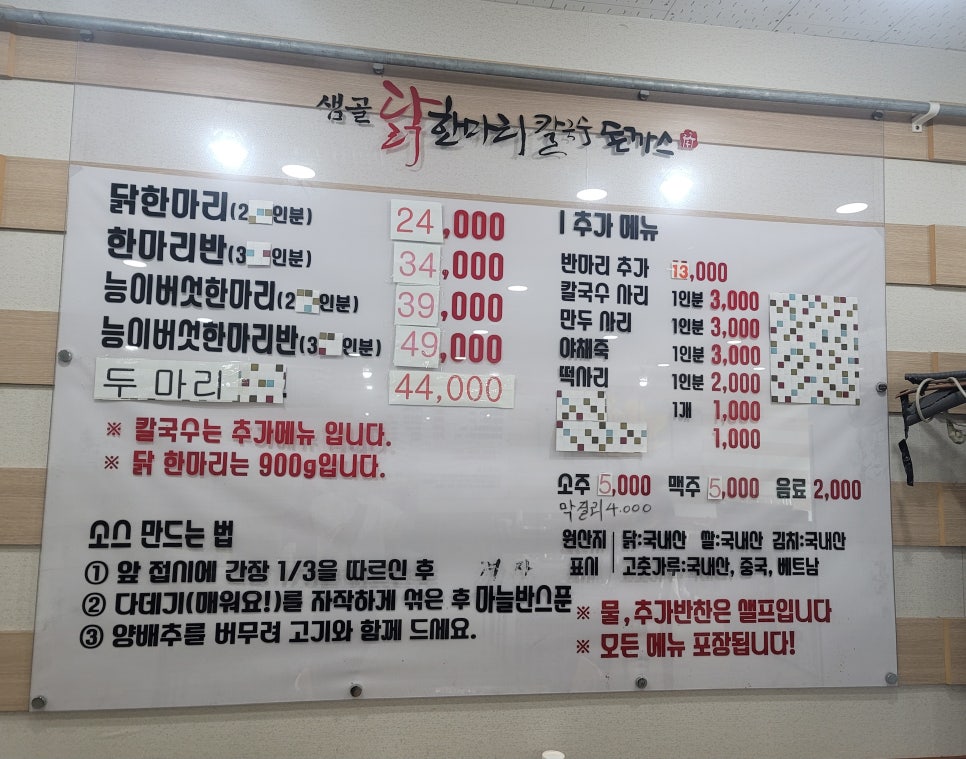 샘골 닭한마리칼국수 돈까스
닭한마리(2인분) 24,000
한마리반(3인분) 34,000
능이버섯한마리(2인분) 39,000
능이버섯한마리반(3인분) 49,000
두마리 44,000
※ 칼국수는 추가메뉴 입니다.
※ 닭 한마리는 900g입니다.
소스 만드는 법
① 앞 접시에 간장 1/3을 따르신 후 겨자
② 다데기(매워요!)를 자작하게 섞은 후 마늘반스푼
③ 양배추를 버무려 고기와 함께 드세요.
추가 메뉴
반마리 추가 13,000
칼국수 사리 1인분 3,000
만두 사리 1인분 3,000
야체죽 1인분 3,000
떡사리 1인분 2,000
1개 1,000
1,000
소주 5,000 맥주 5,000 음료 2,000
막걸리 4.000
원산지 표시 닭:국내산 쌀:국내산 김치:국내산
고춧가루:국내산, 중국, 베트남
※ 물, 추가반찬은 샐프입니다
※ 모든 메뉴 포장됩니다!